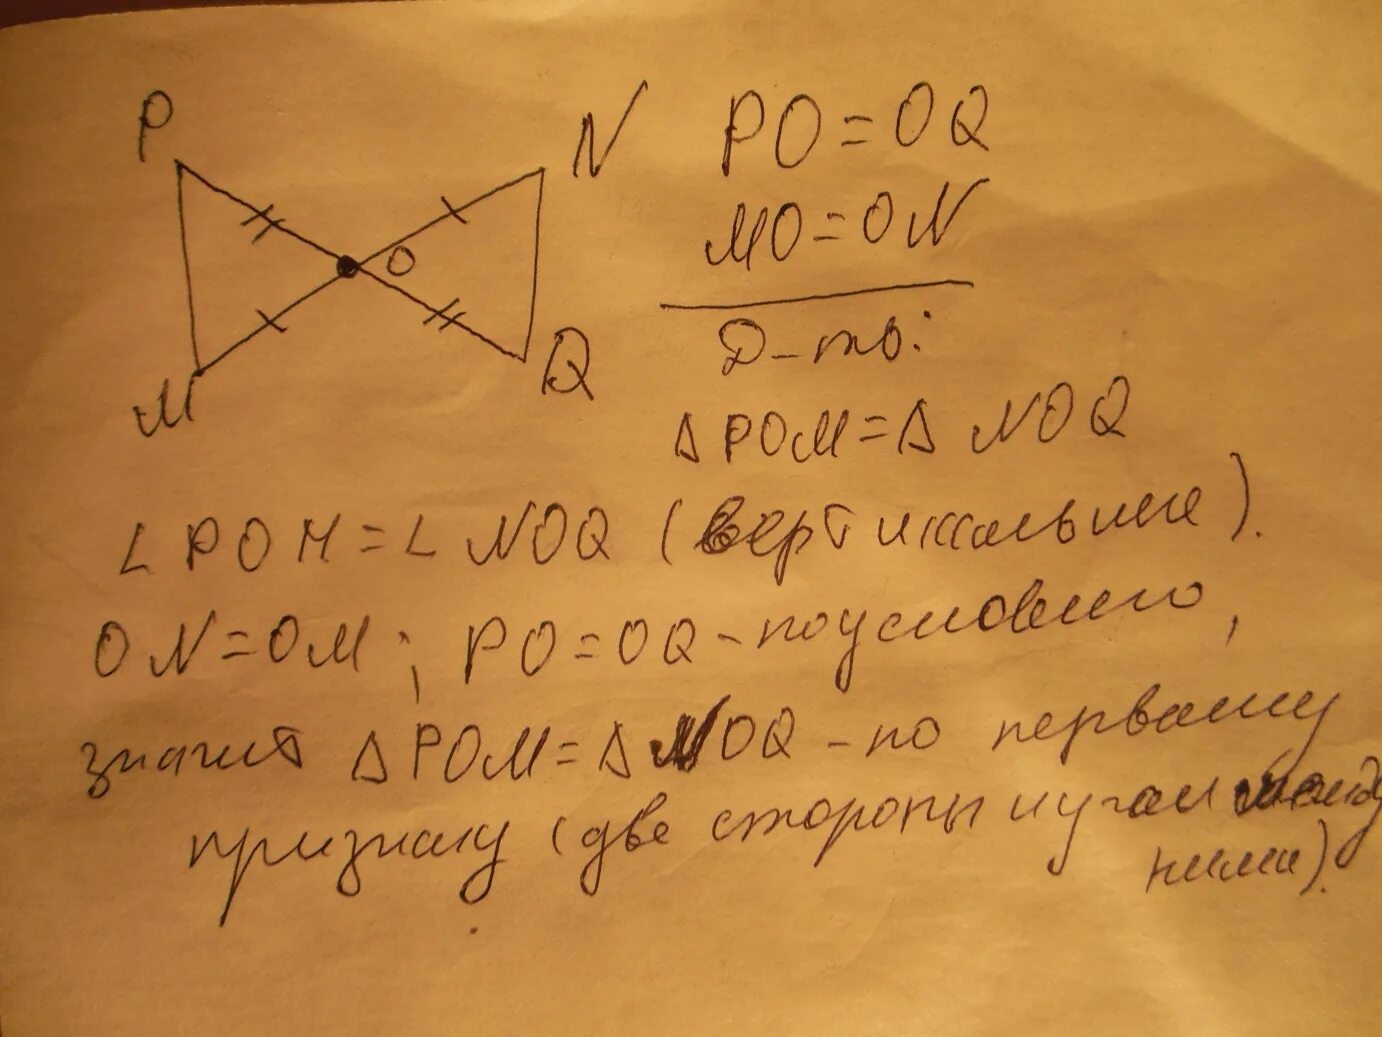 P
N
O
M
Q
PO=OQ
MO=ON
Д-ть:
Δ POM=Δ NOQ
∠ POM=∠ NOQ (вертикальные).
ON=OM; PO=OQ-по условию,
значит Δ POM=Δ NOQ -по первому
признаку (две стороны и угол между
ними).